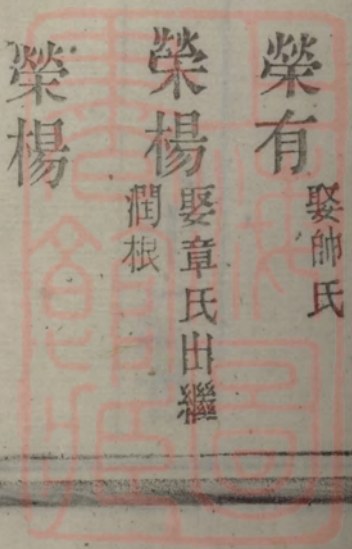 榮有
娶帥氏
榮楊
娶章氏出繼
潤根
榮楊